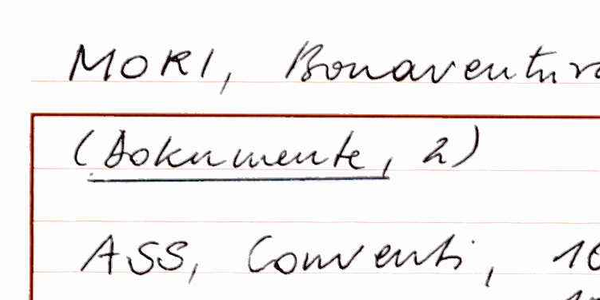 MORI, Bonaventura
(Dokumente, 2)
ASS, Conventi, 16